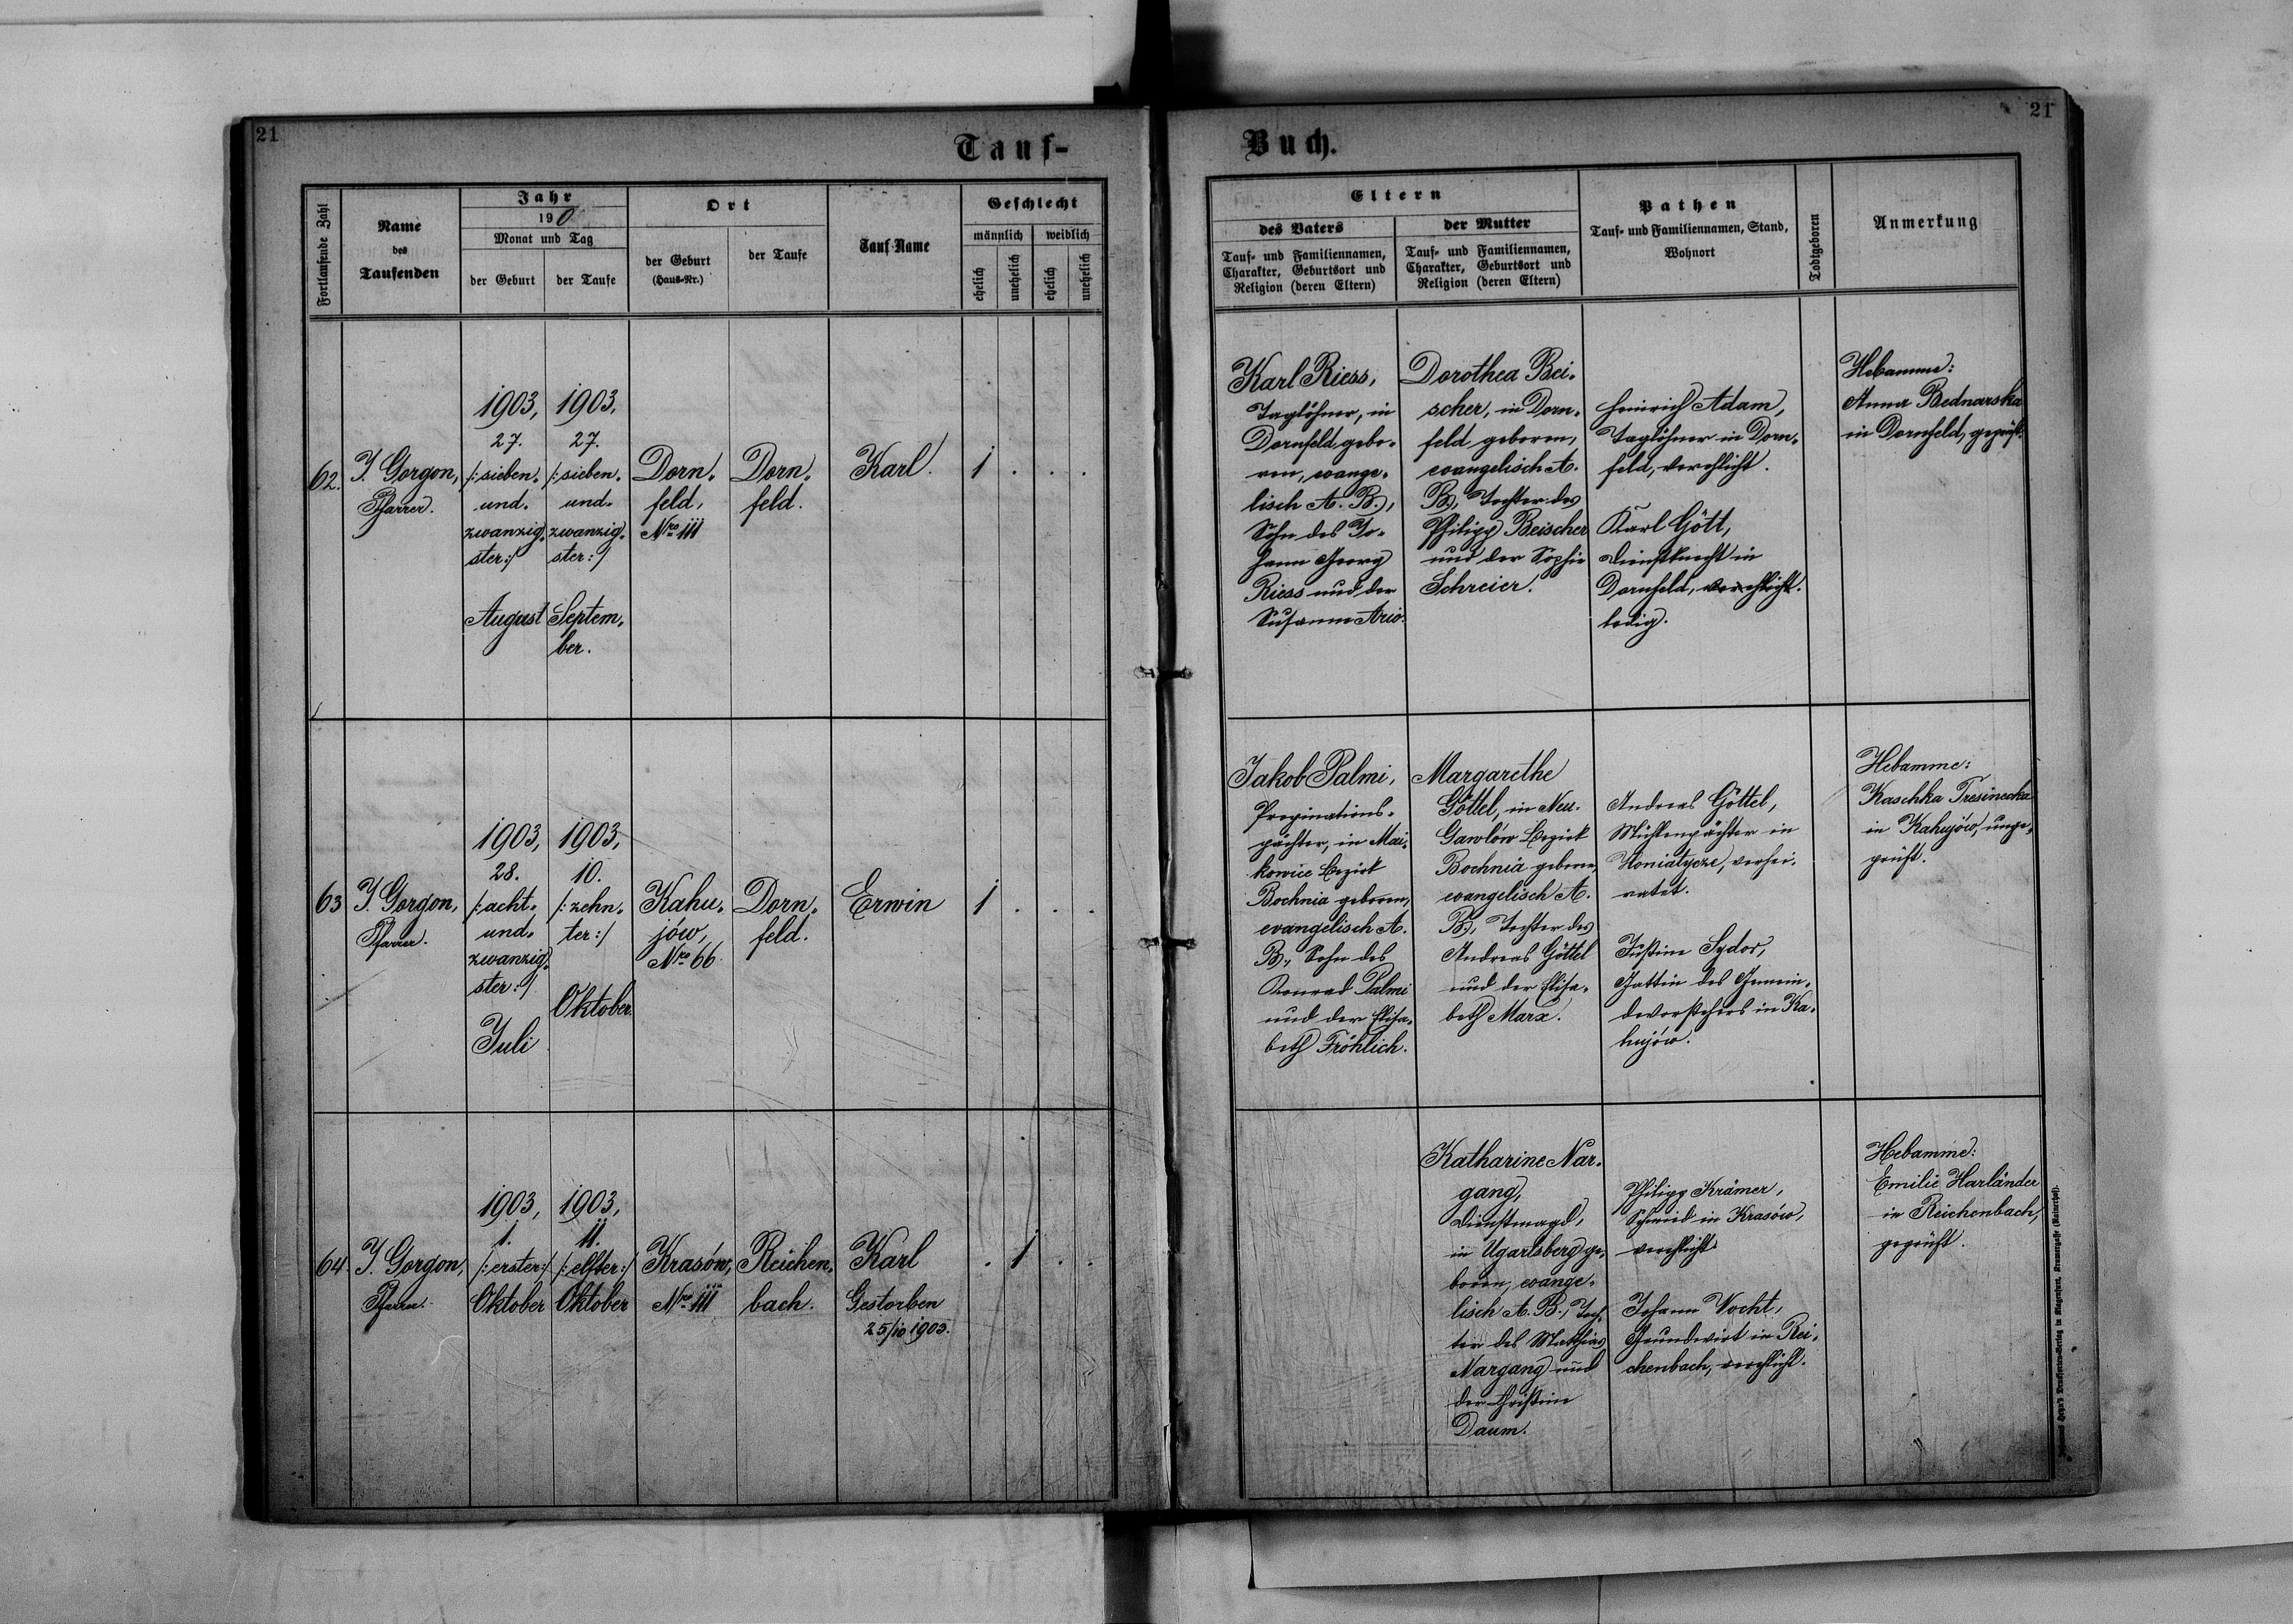 21
Tauf-
Fortlaufende Zahl
Name
des
Taufenden
Jahr
190
Monat und Tag
der Geburt
der Taufe
Ort
der Geburt
(Haus-Nr.)
der Taufe
Tauf-Name
Geschlecht
männlich
weiblich
ehelich
unehelich
ehelich
unehelich
62.
J. Gorgon,
Pfarrer.
1903,
27.
/:sieben-
und-
zwanzig-
ster:/
August
1903,
27.
/:sieben-
und-
zwanzig-
ster:/
Septem-
ber.
Dorn-
feld,
Nro 111
Dorn-
feld.
Karl.
1 . . .
63
J. Gorgon,
Pfarrer.
1903,
28.
/:acht-
und-
zwanzig-
ster:/
Juli
1903,
10.
/:zehn-
ter:/
Oktober
Kahu-
jów,
Nro 66
Dorn-
feld.
Erwin
1 . . .
64.
J. Gorgon,
Pfarrer.
1903,
1.
/:erster:/
Oktober
1903,
11.
/:elfter:/
Oktober
Krasów,
Nro 111
Reichen-
bach.
Karl
Gestorben
25/10 1903.
. 1 . .
Buch.
21
Eltern
des Vaters
Tauf- und Familiennamen,
Charakter, Geburtsort und
Religion (deren Eltern)
der Mutter
Tauf- und Familiennamen,
Charakter, Geburtsort und
Religion (deren Eltern)
Pathen
Tauf- und Familiennamen, Stand,
Wohnort
Todtgeboren
Anmerkung
Karl Riess,
Taglöhner, in
Dornfeld gebo-
ren, evange-
lisch A. B.,
Sohn des Jo-
hann Georg
Riess und der
Susanna
Dorothea Bei-
scher, in Dorn-
feld geboren,
evangelisch A.
B., Tochter des
Philipp Beischer
und der Sophie
Schreier.
Heinrich Adam,
Taglöhner in Dorn-
feld, verehlicht.
Karl Gött,
Dienstknecht in
Dornfeld, verehlicht.
ledig.
Hebamme:
Anna Bednarska
in Dornfeld, geprüft.
Jakob Palmi,
Propinations-
pächter, in Mai-
kowice Bezirk
Bochnia geboren,
evangelisch A.
B., Sohn des
Konrad Palmi
und der Elisa-
beth Fröhlich.
Margarethe
Göttel, in Neu-
Gawlów Bezirk
Bochnia geboren,
evangelisch A.
B., Tochter des
Andreas Göttel
und der Elisa-
beth Marx.
Andreas Göttel,
Mühlenpächter in
Honiatycze, verhei-
ratet.
Justine Sydor,
Gattin des Gemein-
devorstehers in Ka-
hujów.
Hebamme:
Kaschka Tresinecka
in Kahujów, unge-
prüft.
Katharine Nar-
gang,
Dienstmagd,
in Ugartsberg ge-
boren, evange-
lisch A. B., Toch-
ter des Mathias
Nargang und
der Christine
Daum.
Philipp Krämer,
Schmid in Krasów,
verehlicht.
Johann Vocht,
Grundwirt in Rei-
chenbach, verehlicht.
Hebamme:
Emilie Harländer
in Reichenbach,
geprüft.